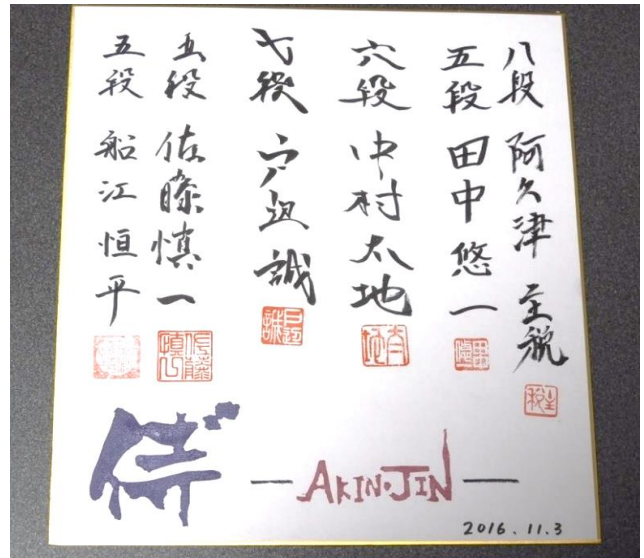 八段 阿久津 主税
五段 田中 悠一
六段 中村太地
七段 戸辺 誠
五段 佐藤慎一
五段 船江恒平
侍
AKIN・JIN
2016.11.3